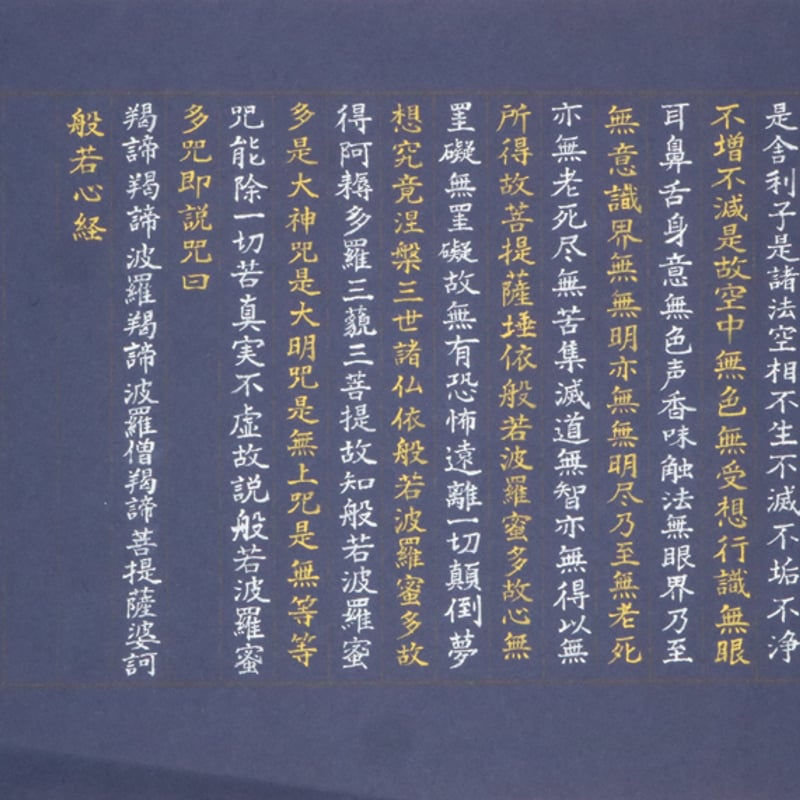 是舎利子是諸法空相不生不滅不垢不浄
不増不滅是故空中無色無受想行識無眼
耳鼻舌身意無色声香味触法無眼界乃至
無意識界無無明亦無無明尽乃至無老死
亦無老死尽無苦集滅道無智亦無得以無
所得故菩提薩埵依般若波羅蜜多故心無
罣礙無罣礙故無有恐怖遠離一切顛倒夢
想究竟涅槃三世諸仏依般若波羅蜜多故
得阿耨多羅三藐三菩提故知般若波羅蜜
多是大神呪是大明呪是無上呪是無等等
呪能除一切苦真実不虚故説般若波羅蜜
多呪即説呪曰
羯諦羯諦波羅羯諦波羅僧羯諦菩提薩婆訶
般若心経